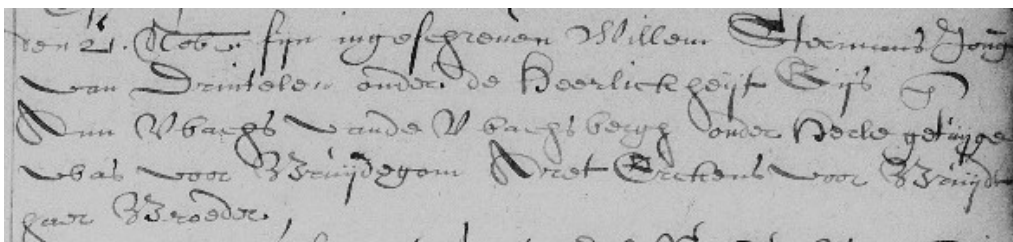 den 21. Nob: sijn ingeschreven Willem Steinens Jong
van Drintelen onder de Heerlickheijt Gijs en
Ann Vbachs vande Vbachsbergh onder Herle getuijge
was voor Bruijdegom Aret Erckens voor Bruijdt
haer Broeder,